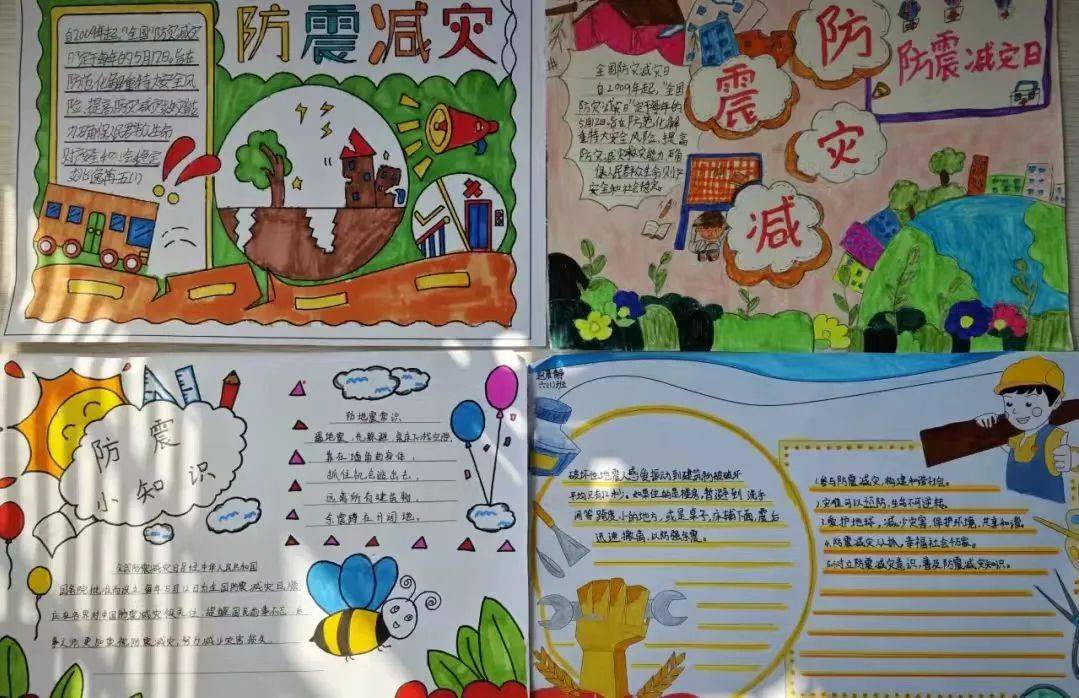 防震减灾
自2009年起,"全国防灾减灾
日"定于每年的5月12日,旨在
防范化解重特大安全风
险、提高防灾减灾救灾能
力,确保人民群众生命
财产安全和社会稳定
防震减灾
防震减灾日
全国防灾减灾日
自2009年起,"全国
防灾减灾日"定于每年的
5月12日,旨在防范化解
重特大安全风险、提高
防灾减灾救灾能力,确
保人民群众生命财产
安全和社会稳定。
防震
小知识
防地震常识
遇地震,先躲避,
靠在墙角曲身体,
抓住机会逃出去,
远离所有建筑物,
余震蹲在开阔地。
全国防震减灾日是经中华人民共和国
国务院批准而设立,每年5月12日为全国防震减灾日
六(1)班
破坏性地震人感觉振动到建筑物被破坏
平均只有12秒。如果住的是楼房,暂避到洗手
间等跨度小的地方,或是桌子,床铺下面,震后
迅速撤离,以防强余震。
1.参与防震减灾,构建和谐社会。
2.灾难可以预防,生命不可逆转。
3.爱护地球,减少灾害,保护环境,共享和谐。
4.防震减灾从我,幸福社会千万家。
5.树立防震减灾意识,普及防震减灾知识。